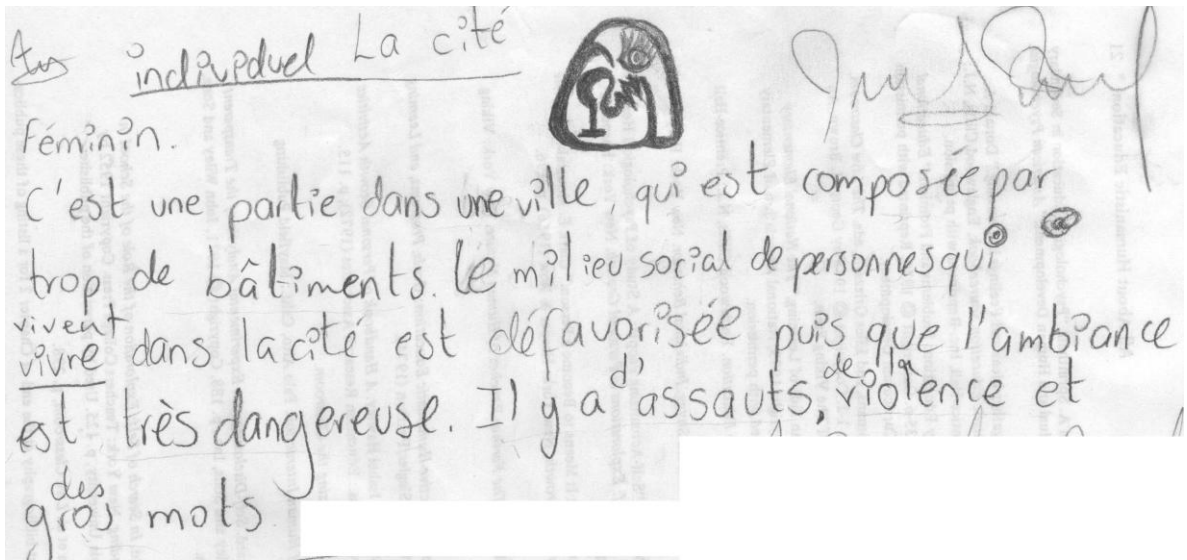 individuel La cité
Féminin.
C'est une partie dans une ville, qui est composée par
trop de bâtiments. Le milieu social de personnes qui
vivent
vivre dans la cité est défavorisée puis que l'ambiance
d' de la
est très dangereuse. Il y a assauts, violence et
des
gros mots